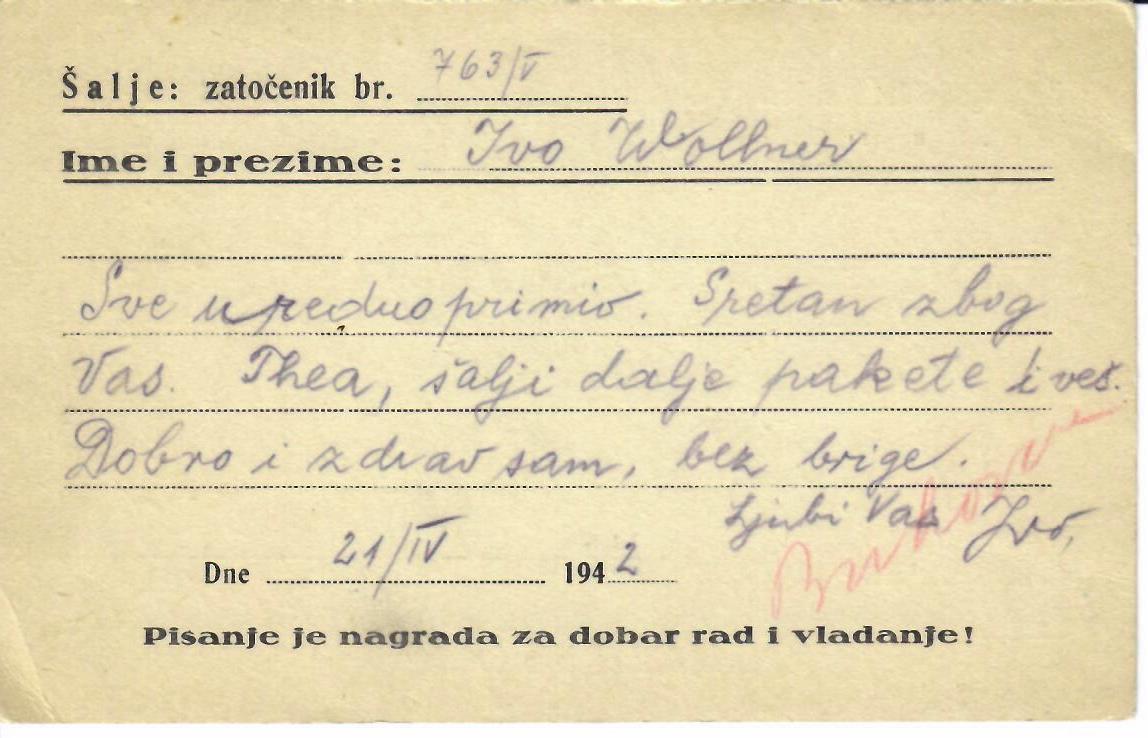 Šalje: zatočenik br. 763/V
Ime i prezime: Ivo Wollner
Sve u redno primio. Sretan zbog
Vas. Thea, šalji dalje pakete i veš.
Dobro i zdrav sam, bez brige.
Ljubi Vas Ivo,
Dne 21/IV 1942
Pisanje je nagrada za dobar rad i vladanje!